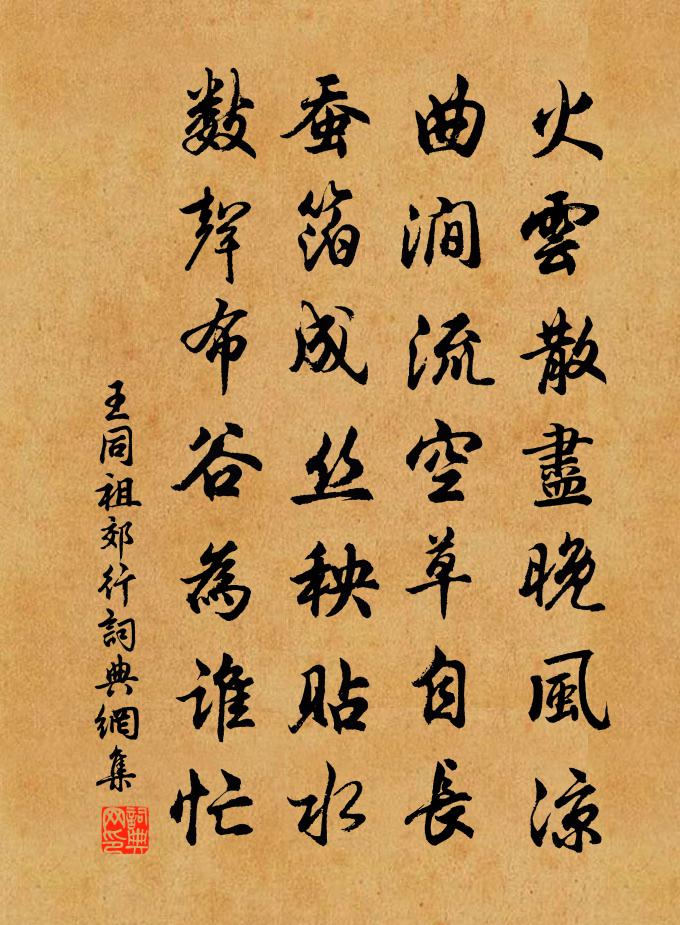 火雲散盡晚風涼
曲澗流空草自長
蚕箔成丝秧貼水
数聲布谷為誰忙
王同祖郊行詞典網集
詞典網印